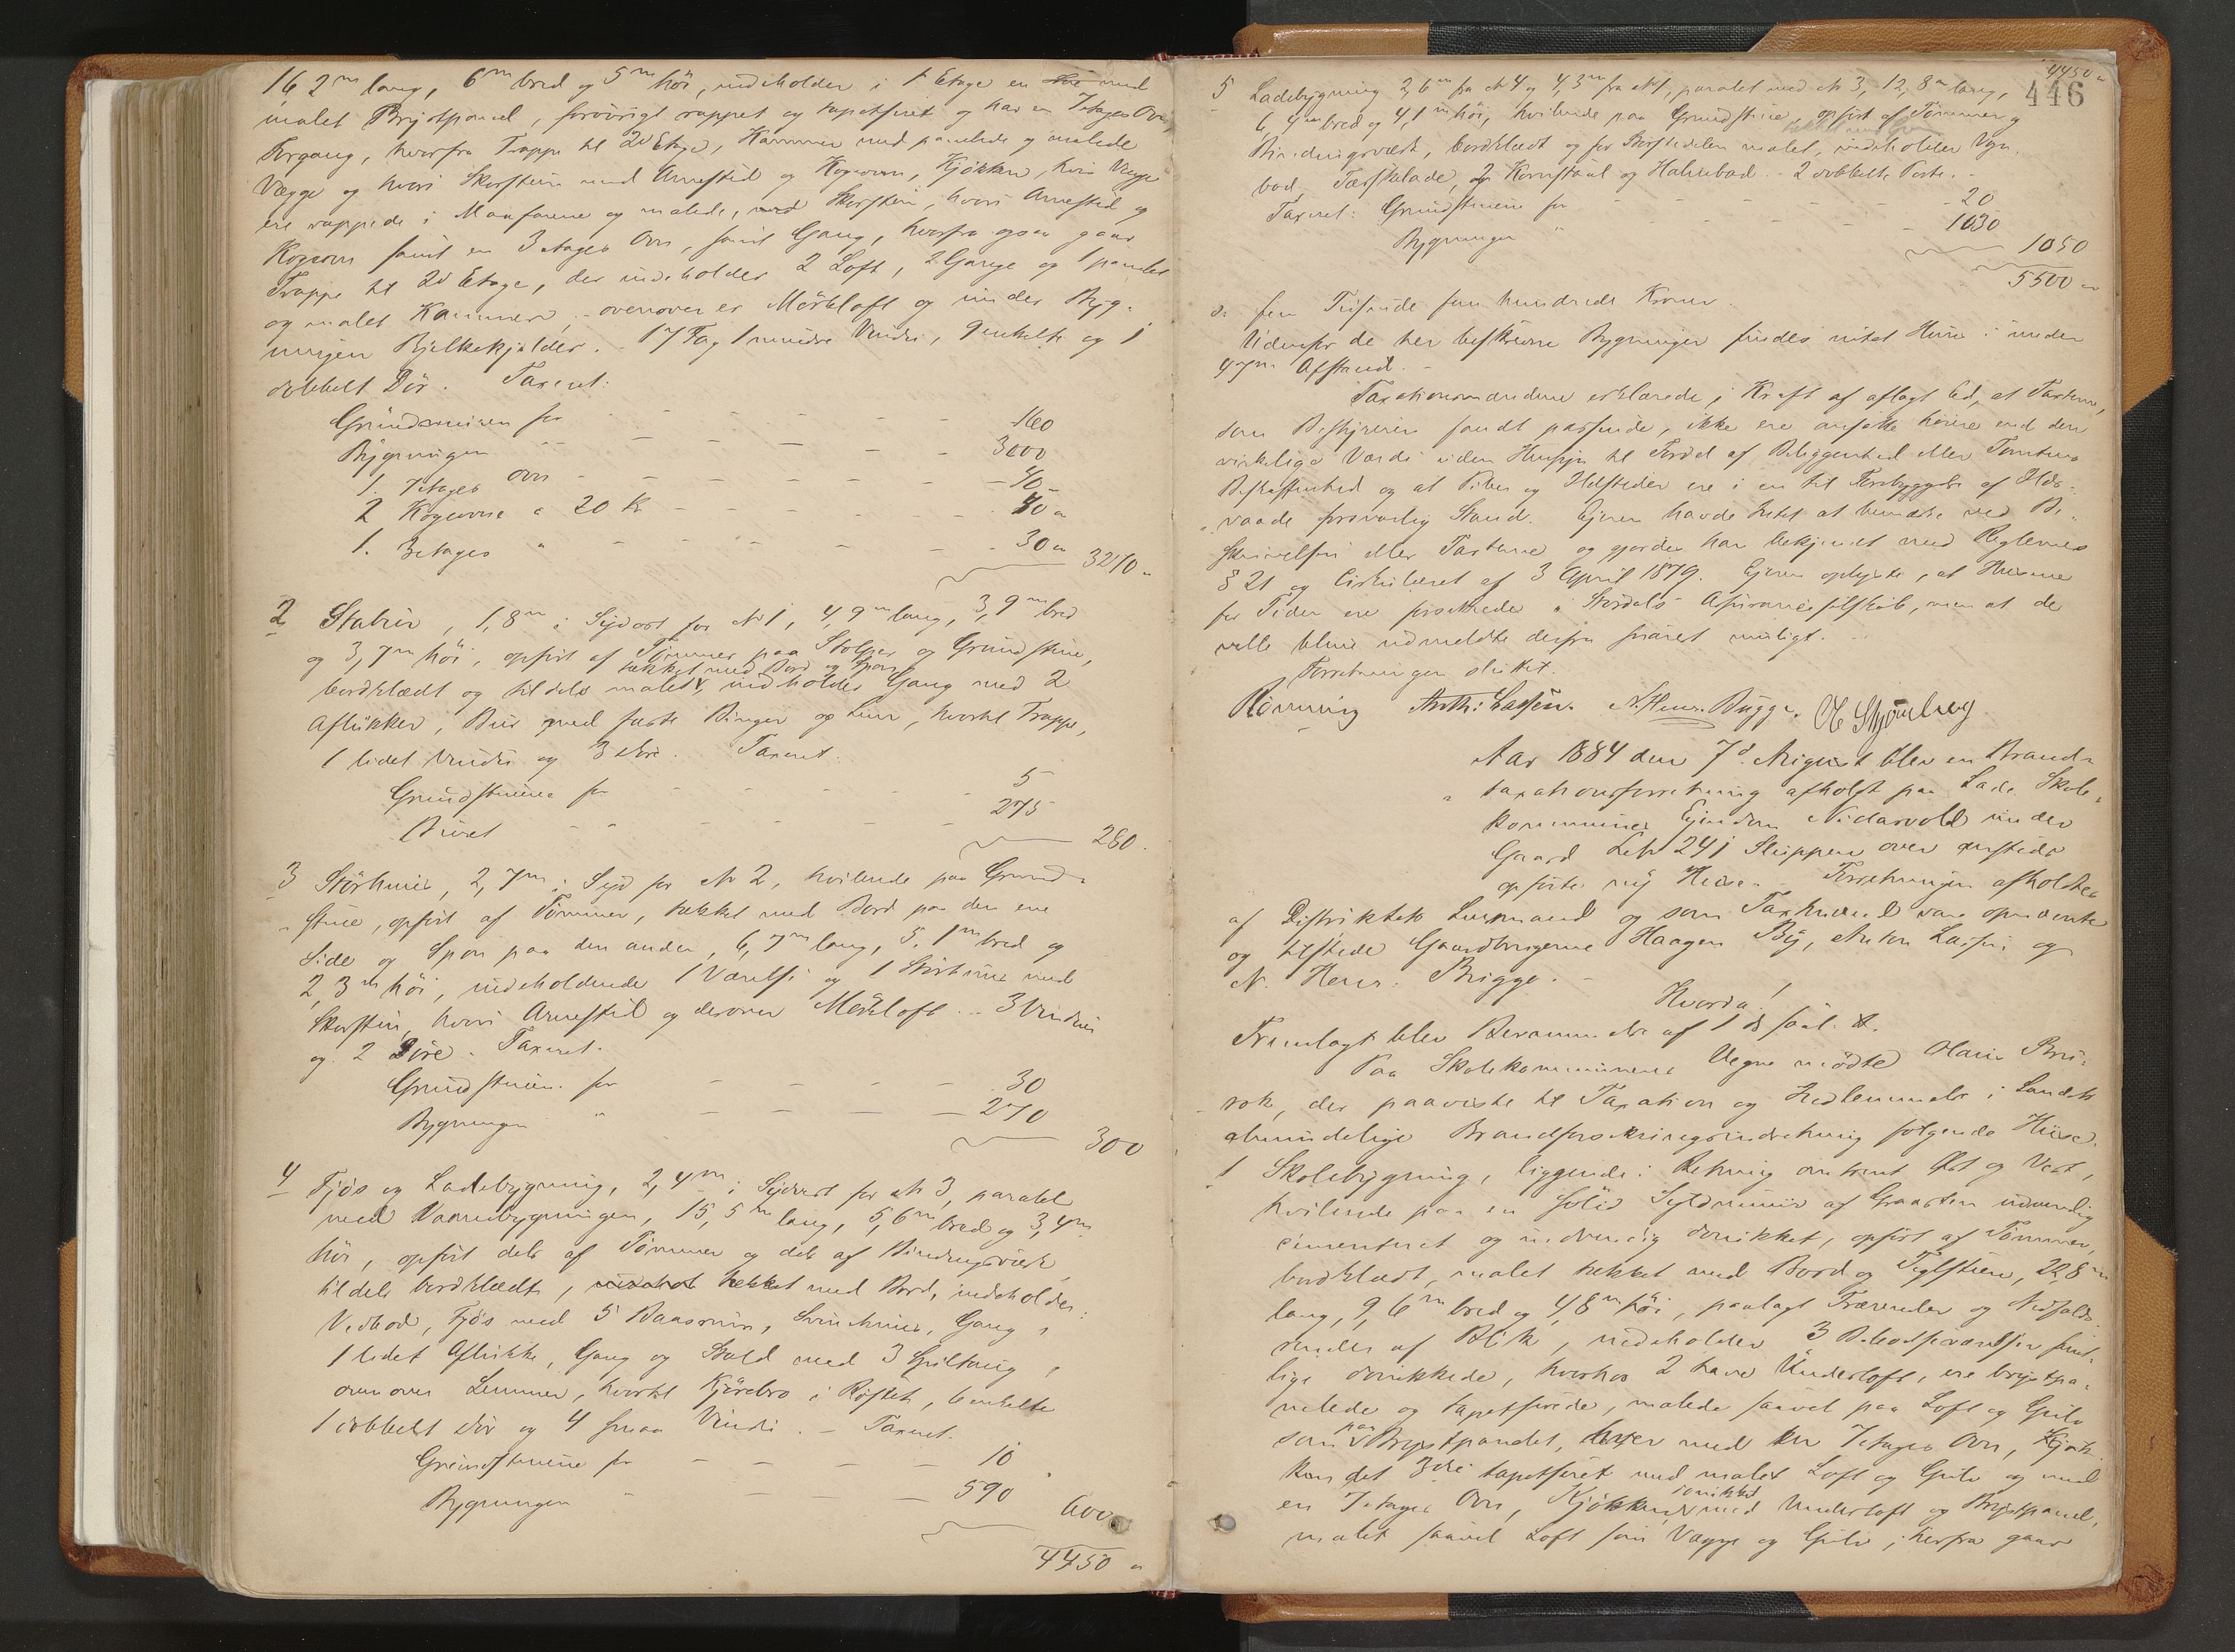 16,2m lang, 6m bred og 5m høi, indeholder i 1 Etage en med
malet Brystpanel, forøvrigt rappet og tapetseret og har en 7etages Ovn
Forgang, hvorfra Trappe til 2d Etage, Kammer med panelede og malede
Vægge og hvori Skorsten med Arnested og Kogeovn, Kjøkken, hvis Vægge
ere rappede i Muurformene og malede, med Skorsten, hvori Arnested og
Kogeovn samt en 3 etages Ovn, samt Gang, hvorfra ogsaa gaar
Trappe til 2d Etage, der indeholder 2 Loft, 2 Gange og 1 panelet
og malet Kammer, - ovenover er Mørkloft og under Byg-
ningen Bjelkekjelder. - 17 Fag 1 mindre Vindu, 9 enkelte og 1
dobbelt Dør. Taxeret:
Grundmuren for - - - - 160
Bygningen " - - - - - 3000
1. 7etages Ovn - - - - - 40 -
2 Kogeovne a 20 Kr - - - - - 40 "
1. 3etages " - - - - - 30 "
3270 "
2 Stabur, 1,8m i Sydost for No 1, 4,9m lang, 3,9m bred
og 3,7m høi, opført af Tømmer paa Stolper og Grundstene,
tækket med Bord og Spon
bordklædt og tildels malet, indeholder Gang med 2
Aflukker, Bur med faste Binger og Lem, hvortil Trappe,
1 lidet Vindu og 3 Døre. Taxeret:
Grundstenene for - - - - 5
Buret - " - - - 275
280.
3 Størhuus, 2,7m i Syd for No 2, hvilende paa Grund-
stene, opført af Tømmer, tækket med Bord paa den ene
Side og Spon paa den anden, 6,7m lang, 5,1m bred og
2,3m høi, indeholdende 1 Værelse og 1 Størhuus med
Skorsten, hvori Arnested og derover Mørkloft. - 3 Vinduer
og 2 Døre. Taxeret.
Grundstenene for - - - - 30
Bygningen " - - - - 270
300
4 Fjøs og Ladebygning, 2,4m i Sydvest for No 3, paralel
med Vaaningsbygningen, 15,5m lang, 5,6m bred og 3,4m
høi, opført dels af Tømmer og dels af Bindingsværk
tildels bordklædt, tækket med Bord, indeholder:
Vedbod, Fjøs med 5 Baasrum, Svinehuus, Gang,
1 lidet Aflukke, Gang og Stald med 3 Spiltaug,
ovenover Lemmer, hvortil Kjørebro i Røstet, 6 enkelte
1 dobbelt Dør og 4 smaa Vindu. - Taxeret.
Grundstenene for - - - - 10
Bygningen " - - - 590
600
4450 "
4450 "
446
5 Ladebygning 2,6m fra No 4 og 4,3m fra No 1, paralel med No 3, 12,8m lang,
6,4m bred og 4,1m høi, hvilende paa Grundstene, opført af Tømmer og
Bindingsværk, bordklædt og for Størstedelen malet, indeholder Vogn-
bod, Tærskelade, 2 Kornstaal og Halmbod. - 2 dobbelte Porte. -
Taxeret: Grundstenene for - - - - - 20
Bygningen " - - - - - 1030
1050
5500 "
o: fem Tusinde fem hundrede Kroner.
Udenfor de her beskrevne Bygninger findes intet Huus i under
47m Afstand. -
Taxationsmændene erklærede, i Kraft af aflagt Ed, at Taxterne,
som Bestyreren fandt passende, ikke ere ansatte høiere end den
virkelige Værdi uden Hensyn til Fordel af Beliggenhed eller Tomtens
Beskaffenhed og at Piber og Ildsteder ere i en til Forebyggelse af Ilds-
vaade forsvarlig Stand. Ejeren havde Intet at bemærke ved Be-
skrivelsen eller Taxterne og gjordes han bekjendt med Reglernes
§ 21 og Cirkulæret af 3 April 1879. Ejeren oplyste, at Husene
for Tiden ere forsikrede i Størdals Assuranceselskab, men at de
ville blive udmeldte derfra snarest muligt. -
Forretningen sluttet.
Rønning Anth: Lassen. N. Henr. Bugge. O Skjønberg
Aar 1884 den 7d August blev en Brand-
taxationsforretning afholdt paa Lade Skole-
kommunes Ejendom Nidarvold under
Gaard Lno 241 Sluppen over dersteds
opførte ny Huse. - Forretningen afholdtes
af Distriktets Lensmand og som Taxtmænd vare opnævnte
og tilstede Gaardbrugerne Haagen By, Anton Lassen og
N. Henr. Bugge. -
Hvorda!
Fremlagt blev Berammelse af 1 ds saal. &.
Paa Skolekommunens Vegne mødte Hans Bru-
rok, der paaviste til Taxation og Indlemmelse i Landets
almindelige Brandforsikringsindretning følgende Huse.
1 Skolebygning, liggende i Retning omtrent Øst og Vest,
hvilende paa en solid Syldmuur af Graasten udvendig
cementeret og indvendig donikket, opført af Tømmer,
bordklædt, malet tækket med Bord og Teglstene, 22,8m
lang, 9,6m bred og 4,8m høi, paalagt Trærender og Nedfalds-
render af Blik, indeholder 3 Beboelsesværelser samt-
lige donikkede, hvorhos 2 have Underloft, ere brystpa-
nelede og tapetserede, malede saavel paa Loft og Gulv
som paa Brystpanelet, hver med en 7etages Ovn,
det 3die tapetseret med malet Loft og Gulv og med
en 7etages Ovn, Kjøkken, donikket med Underloft og Brystpanel,
malet saavel Loft som Vægge og Gulv; herfra gaar